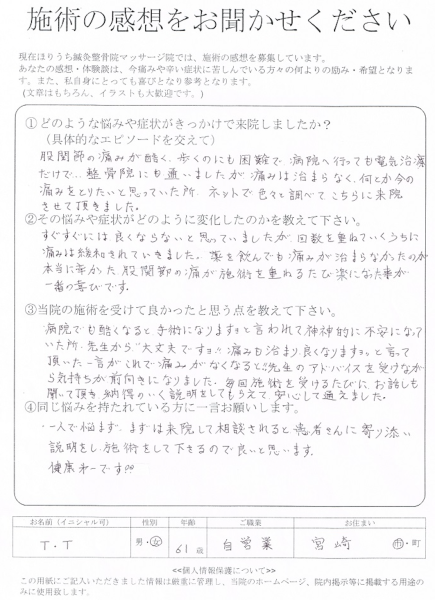 施術の感想をお聞かせください
現在ほりうち鍼灸整骨院マッサージ院では、施術の感想を募集しています。
あなたの感想・体験談は、今痛みや辛い症状に苦しんでいる方々の何よりの励み・希望となります。また、私自身にとっても喜びとなり参考となります。
(文章はもちろん、イラストも大歓迎です。)
①どのような悩みや症状がきっかけで来院しましたか？
(具体的なエピソードを交えて)
股関節の痛みが酷く、歩くのにも困難で、病院へ行っても電気治療
だけで…整骨院にも通いましたが痛みは治まらなく、何とか今の
痛みをとりたいと思っていた所、ネットで色々と調べてこちらに来院
させて頂きました。
②その悩みや症状がどのように変化したのかを教えて下さい。
すぐすぐには良くならないと思っていましたが、回数を重ねていくうちに
痛みは緩和されていきました。薬を飲んでも痛みが治まらなかったのが
本当に辛かった股関節の痛が施術を重ねるたび楽になった事が
一番の喜びです。
③当院の施術を受けて良かったと思う点を教えて下さい。
病院でも酷くなると手術になりますョと言われて精神的に不安になって
いた所、先生から"大丈夫ですョ!!痛みも治まり、良くなりますョ"と言って
頂いた一言がこれで痛みがなくなる!!先生のアドバイスを受けなが
ら気持ちが前向きになりました。毎回施術を受けるたびに、お話しも
聞いて頂き、納得のいく説明をしてもらえて、安心して通えました。
④同じ悩みを持たれている方に一言お願いします。
・一人で悩まず、まずは来院して相談されると患者さんに寄り添い
説明をし、施術をして下さるので良いと思います。
健康が一番です!!
お名前（イニシャル可） 性別 年齢 ご職業 お住まい
T・T 男・女 61歳 自営業 宮崎 市・町
<<個人情報保護について>>
この用紙にご記入いただきました情報は厳重に管理し、当院のホームページ、院内掲示等に掲載する用途のみに使用致します。